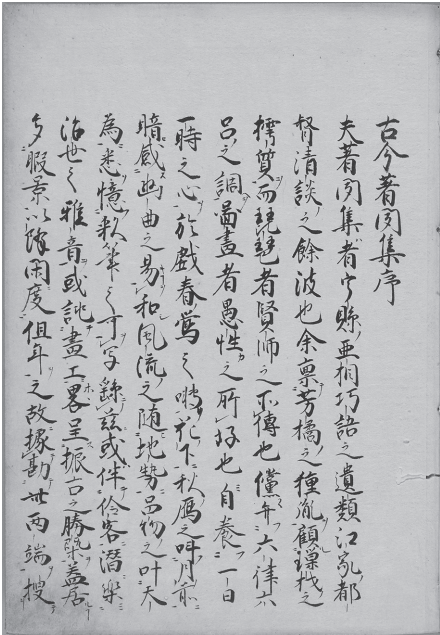 古今著聞集序
夫著聞集者宇縣亜相巧語之遺類江家都
督清談之餘波也余禀芳橘之種胤顧璅材之
樗質而琵琶者賢師之所傳也儻弁六律六
呂之調圖畫者愚性之所好也自養一日
一時之心於戯春鶯之囀花下秋鴈之叫月前
暗感幽曲之易和風流之随地勢品物之叶天
為悉憶彩筆之可写録茲或伴伶客潜楽
治世之雅音或誂畫工畧呈振古之勝槩蓋居
多暇景以降閑度徂年之故據勘此両端捜